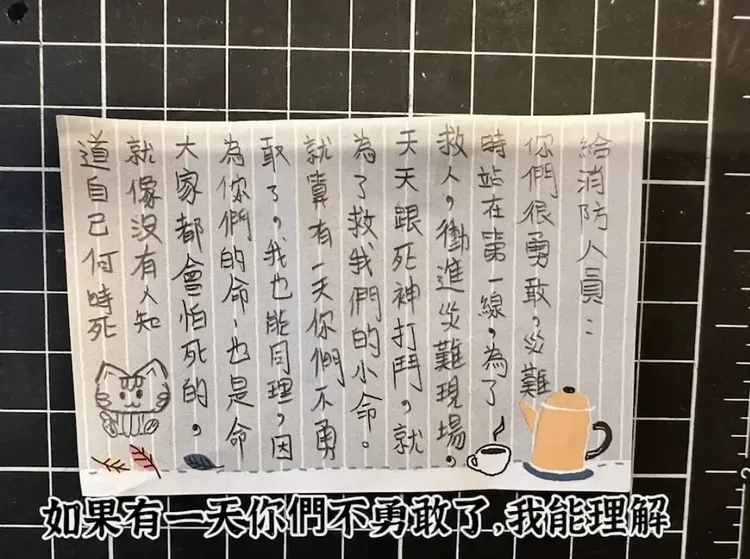 給消防人員：
你們很勇敢，災難
時站在第一線，為了
救人，衝進災難現場，
天天跟死神打鬥，就
為了救我們的小命。
就算有一天你們不勇
敢了，我也能同理，因
為你們的命，也是命
大家都會怕死的。
就像沒有人知
道自己何時死
如果有一天你們不勇敢了，我能理解